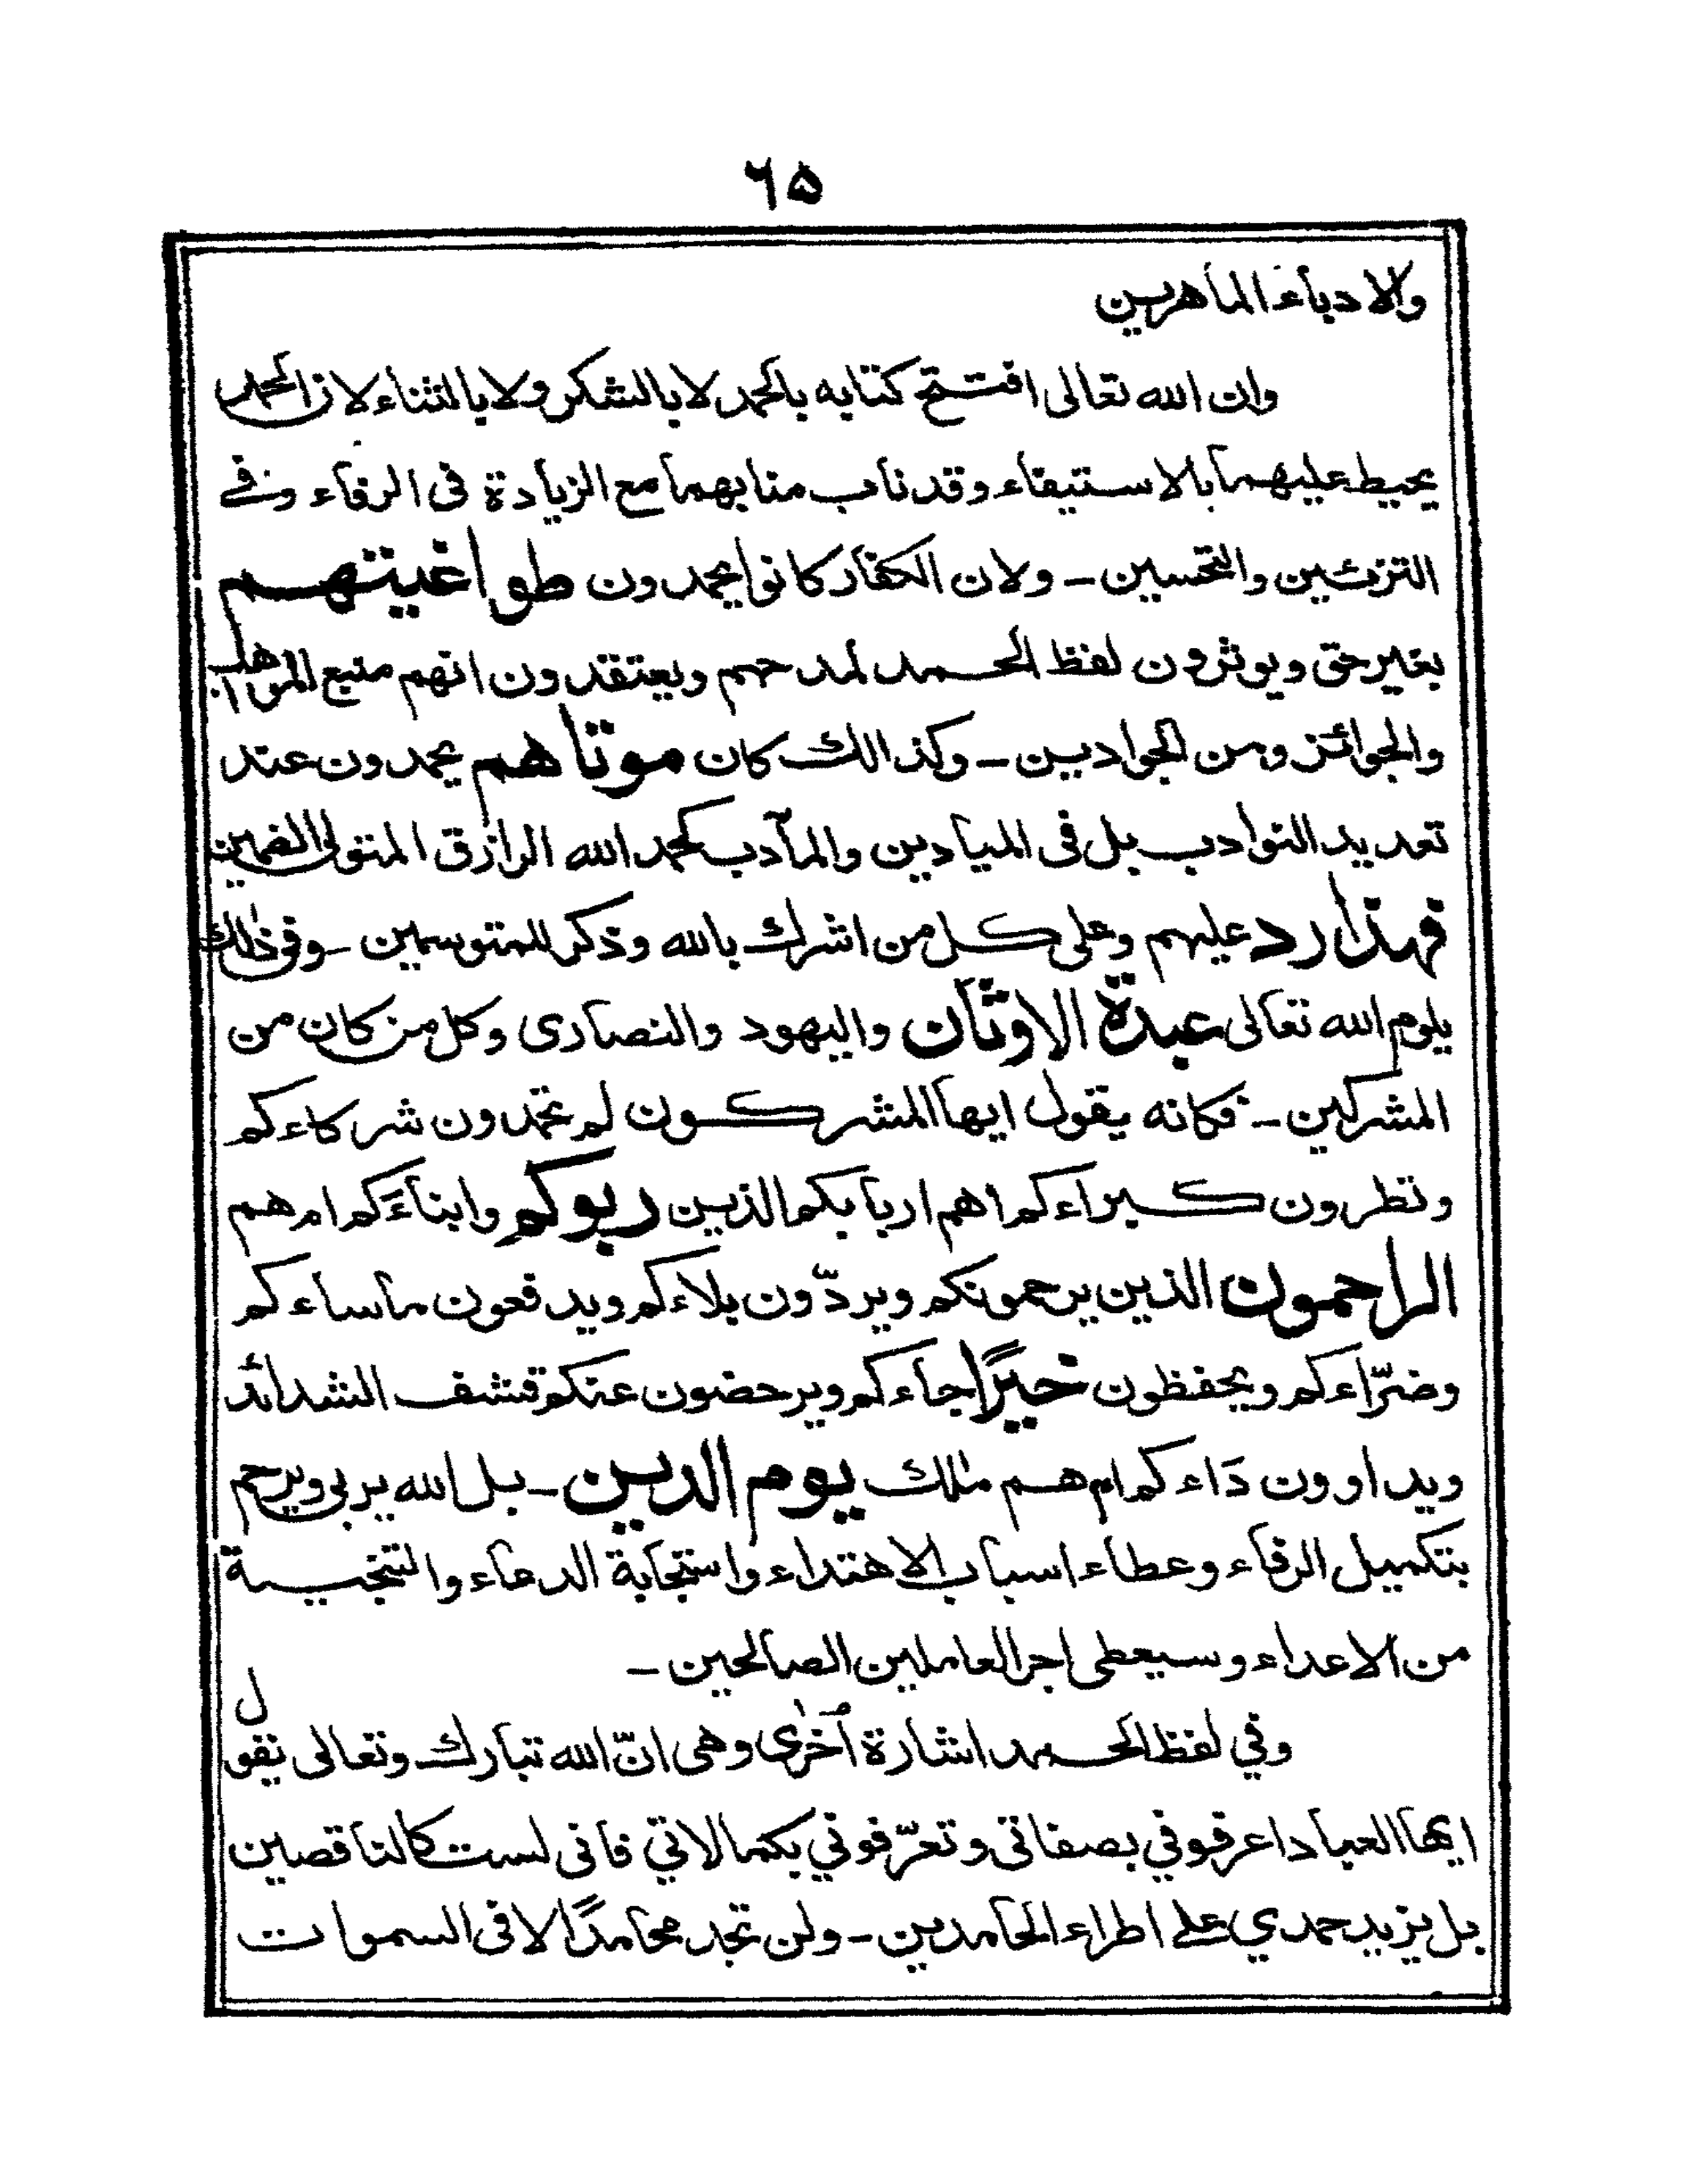 ٦٥
والادباء الماهرين
وان الله تعالى افتتح كتابه بالحمد لا بالشكر ولا بالثناء لان الحمد
يحيط عليهما بالاستيفاء وقد ناب منابهما مع الزيادة فى الرفاء وفي
التزئين والتحسين - ولان الكفار كانوا يحمدون طواغيتهم
بغير حق ويوثرون لفظ الحمد لمدحهم ويعتقدون انهم منبع المواهب
والجوائز ومن الجوادين - وكذالك كان موتاهم يحمدون عند
تعديد النوادب بل فى الميادين والمآدب كحمد الله الرازق المتولى الضمين
فهذا رد عليهم وعلى كل من اشرك بالله وذكر للمتوسمين - وفى ذٰلك
يلوم الله تعالى عبدة الاوثان واليهود والنصارى وكل من كان من
المشركين - فكانه يقول ايها المشركون لم تحمدون شركاءكم
وتطرون كبراءكم اهم اربابكم الذين ربوكم وابناءَكم ام هم
الراحمون الذين يرحمونكم ويردّون بلاءكم ويدفعون ماساءكم
وضرّاءكم ويحفظون خيرًا جاءكم ويرحضون عنكم قشف الشدائد
ويداوون دَاءكم ام هم مٰلك يوم الدين - بل الله يربى ويرحم
بتكميل الرفاء وعطاء اسباب الاهتداء واستجابة الدعاء والتنجية
من الاعداء وسيعطى اجر العاملين الصالحين -
وفي لفظ الحمد اشارة اُخرٰى وهى انّ الله تبارك وتعالى يقول
ايها العباد اعرفوني بصفاتى وتعرّفوني بكمالاتي فانى لست كالناقصين
بل يزيد حمدي على اطراء الحامدين - ولن تجد محامدًا لا فى السموات